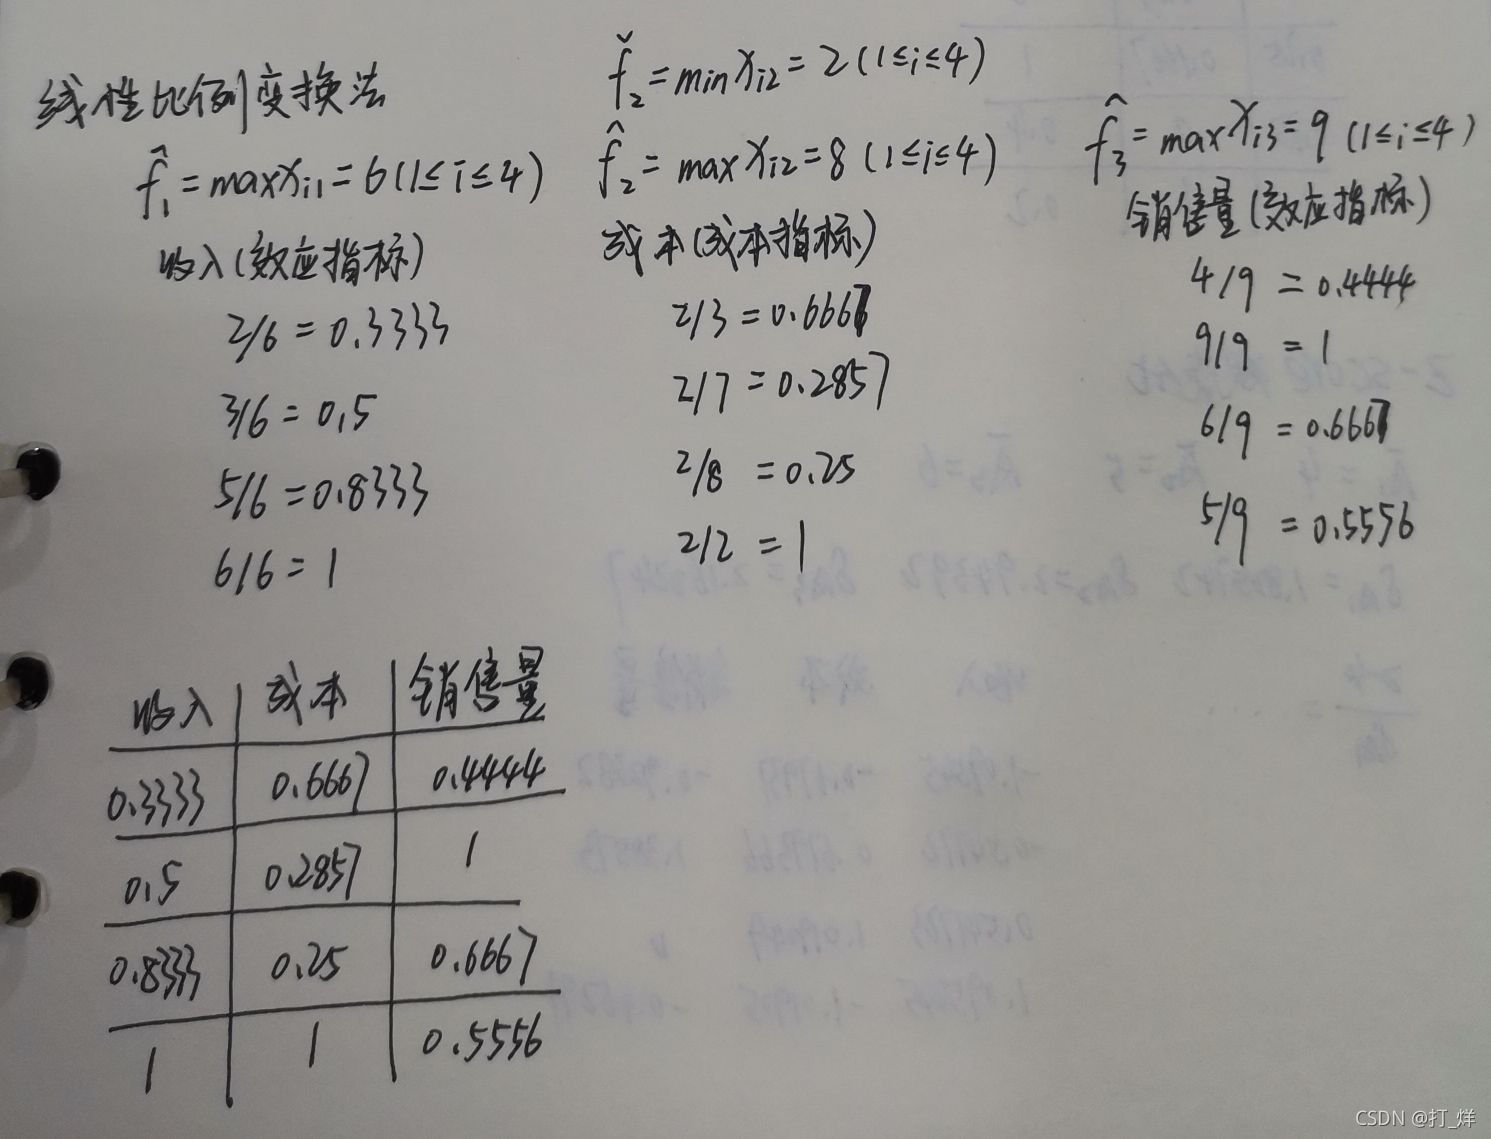 线性比例变换法
f̂₁=maxXi1=6(1≤i≤4)
收入(效应指标)
2/6=0.3333
3/6=0.5
5/6=0.8333
6/6=1
f̌₂=minXi2=2(1≤i≤4)
f̂₂=maxXi2=8(1≤i≤4)
成本(成本指标)
2/3=0.6667
2/7=0.2857
2/8=0.25
2/2=1
f̂₃=maxXi3=9(1≤i≤4)
销售量(效应指标)
4/9=0.4444
9/9=1
6/9=0.6667
5/9=0.5556
收入 成本 销售量
0.3333 0.6667 0.4444
0.5 0.2857 1
0.8333 0.25 0.6667
1 1 0.5556
CSDN @打_烊